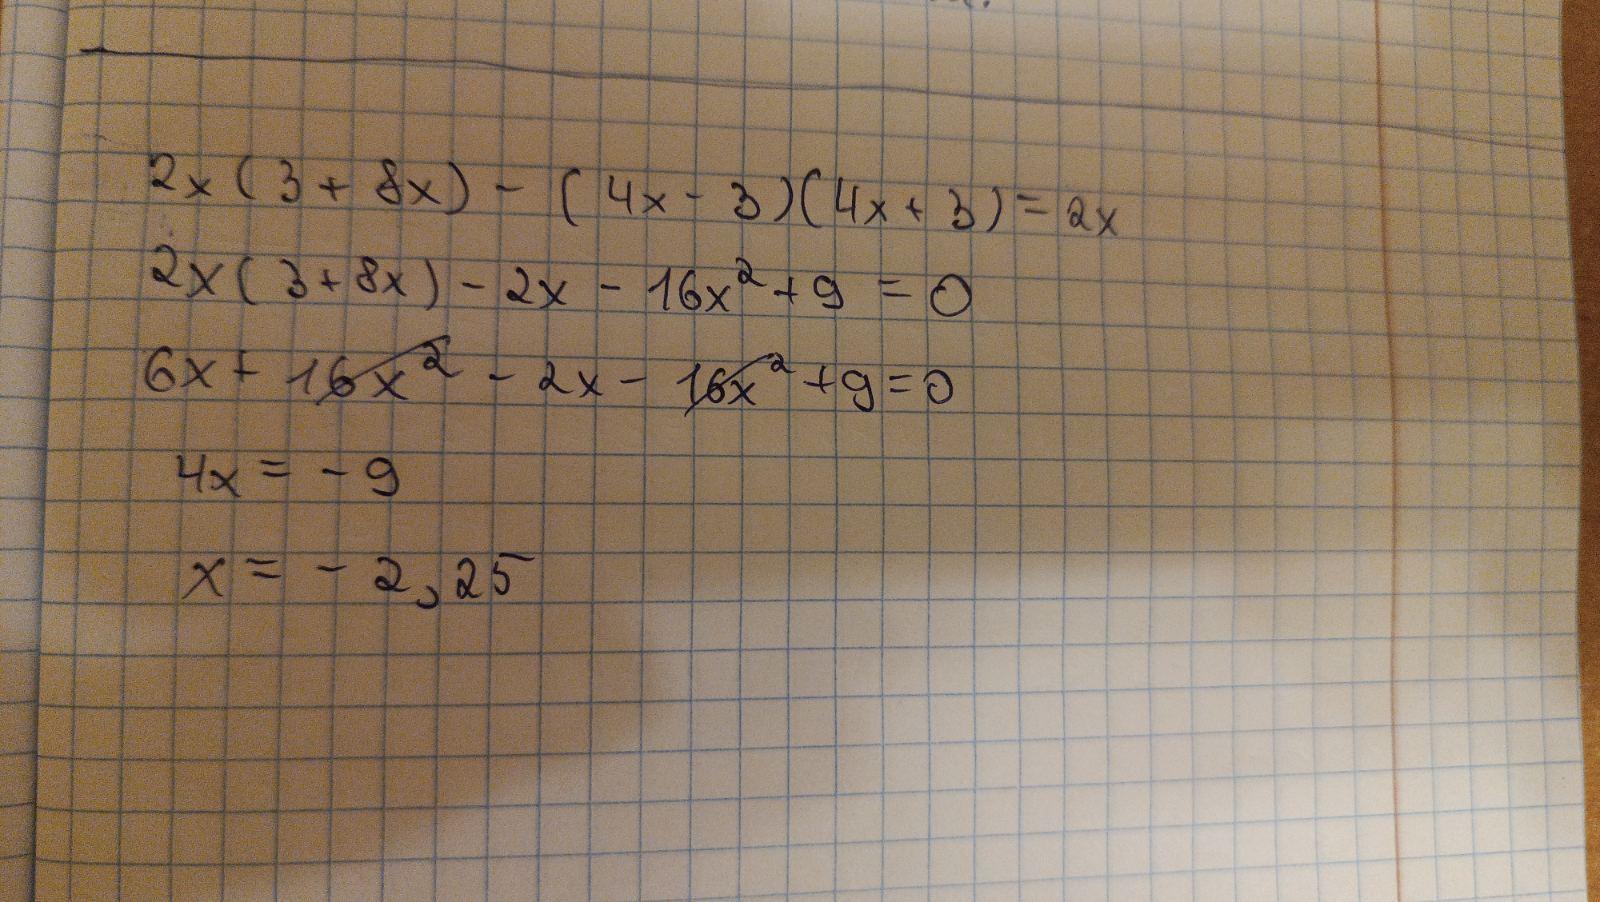 2x(3+8x)-(4x-3)(4x+3)=2x
2x(3+8x)-2x-16x²+9=0
6x+16x²-2x-16x²+9=0
4x=-9
x=-2,25